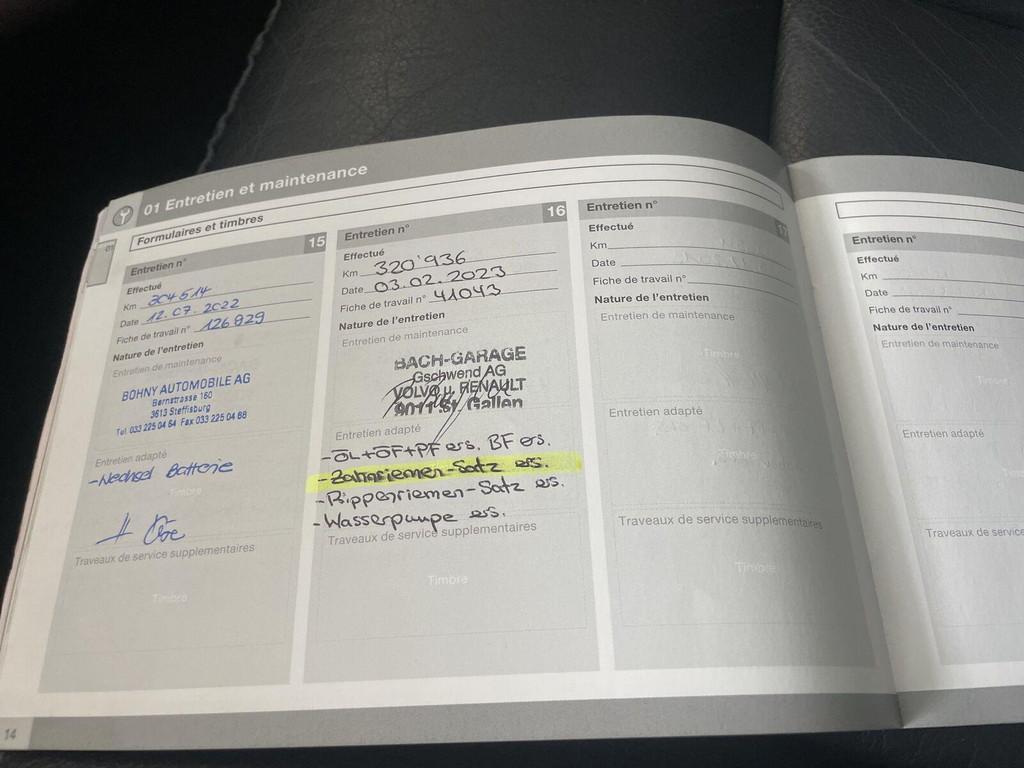 01 Entretien et maintenance
Formulaires et timbres
01
Entretien n° 15
Effectué
Km 304514
Date 12.07.2022
Fiche de travail n° 126829
Nature de l'entretien
Entretien de maintenance
BOHNY AUTOMOBILE AG
Bernstrasse 160
3613 Steffisburg
Tel. 033 225 04 64 Fax 033 225 04 68
Entretien adapté
-Wechsel Batterie
Timbre
Traveaux de service supplementaires
Timbre
Entretien n° 16
Effectué
Km 320'936
Date 03.02.2023
Fiche de travail n° 41043
Nature de l'entretien
Entretien de maintenance
BACH-GARAGE
Gschwend AG
VOLVO u. RENAULT
9011 St. Gallen
Entretien adapté
-ÖL+ÖF+PF ers. BF ers.
-Zahnriemen-Satz ers.
-Rippenriemen-Satz ers.
-Wasserpumpe ers.
Traveaux de service supplementaires
Timbre
Entretien n° 17
Effectué
Km
Date
Fiche de travail n°
Nature de l'entretien
Entretien de maintenance
Timbre
Entretien adapté
Timbre
Traveaux de service supplémentaires
Timbre
Entretien n°
Effectué
Km
Date
Fiche de travail n°
Nature de l'entretien
Entretien de maintenance
Entretien adapté
Traveaux de service
14